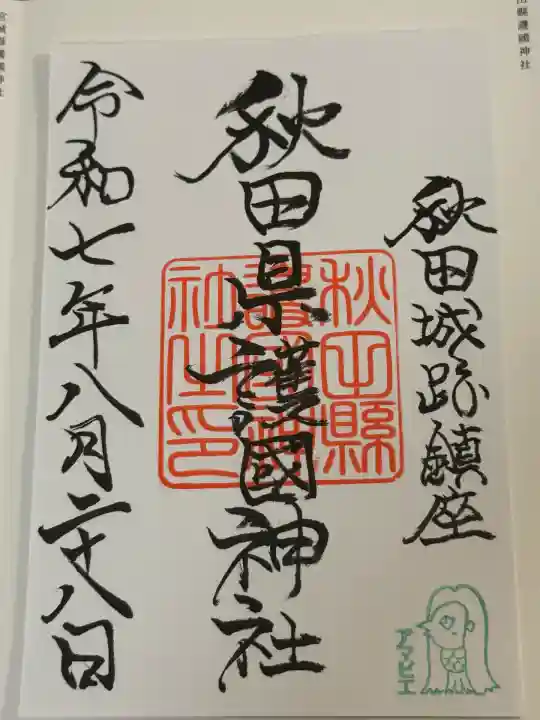 秋田城跡鎮座
秋田県護國神社
令和七年八月二十八日
秋田縣
護國神
社之印
アマビエ